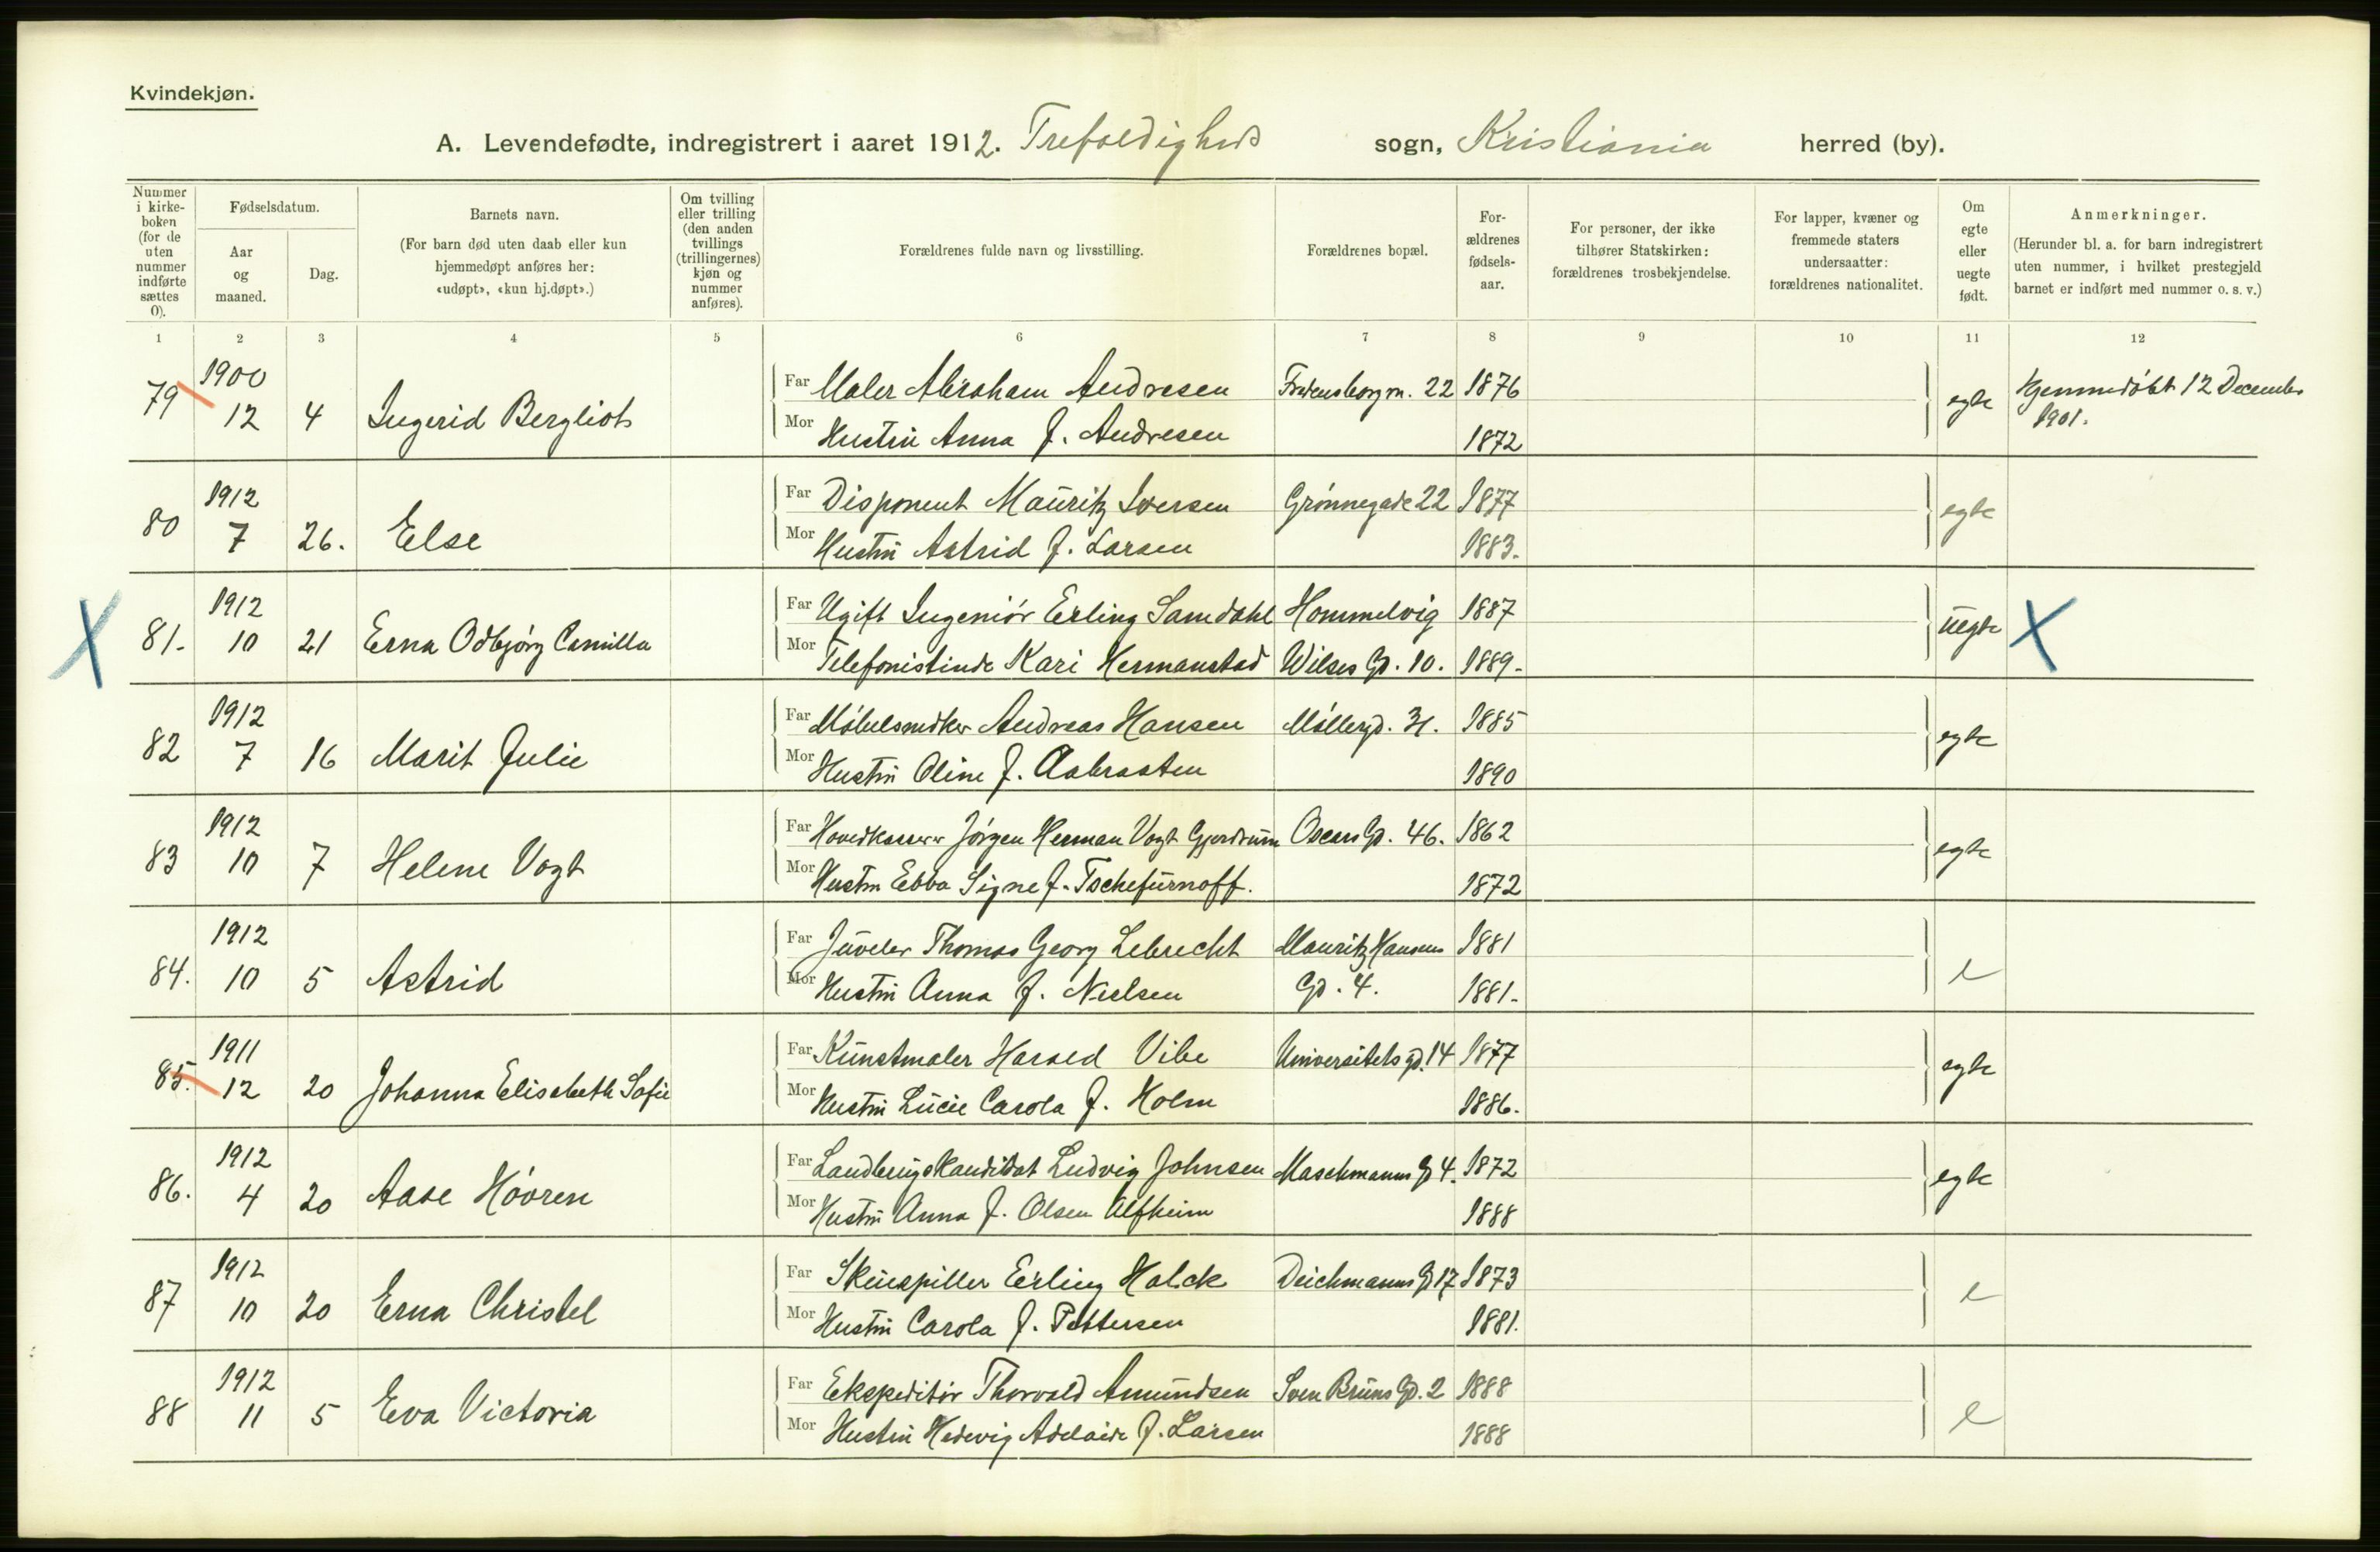 Kvindekjøn.
A. Levendefødte, indregistrert i aaret 1912. Trefoldigheds sogn, Kristiania herred (by).
Nummer i kirke-boken (for de uten nummer indførte sættes 0).
Fødselsdatum.
Aar og maaned.
Dag.
Barnets navn.
(For barn død uten daab eller kun hjemmedøpt anføres her: «udøpt», «kun hj.døpt».)
Om tvilling eller trilling (den anden tvillings (trillingernes) kjøn og nummer anføres).
Forældrenes fulde navn og livsstilling.
Forældrenes bopæl.
For-ældrenes fødsels-aar.
For personer, der ikke tilhører Statskirken: forældrenes trosbekjendelse.
For lapper, kvæner og fremmede staters undersaatter: forældrenes nationalitet.
Om egte eller uegte født.
Anmerkninger.
(Herunder bl. a. for barn indregistrert uten nummer, i hvilket prestegjeld barnet er indført med nummer o. s. v.)
1 2 3 4 5 6 7 8 9 10 11 12
1900 Far Maler Abraham Andresen Fredensborgvn. 22 1876
79 12 4 Ingerid Bergliot egte Hjemmedøbt 12 December
1901.
Mor Hustru Anna f. Andresen 1872
1912 Far Disponent Mauritz Iversen Grønnegade 22 1877
80 7 26. Else egte
Mor Hustru Astrid f. Larsen 1883.
X 1912 Far Ugift Ingeniør Erling Samdahl Hommelvig 1887
81. 10 21 Erna Odbjørg Camilla uegte X
Mor Telefonistinde Kari Hermanstad Wilses Gd. 10. 1889.
1912 Far Møbelsnedker Andreas Hansen Møllergd. 31. 1885
82 7 16 Marit Julie egte
Mor Hustru Oline f. Aabraaten 1890
1912 Far Hovedkasserer Jörgen Herman Vogt Gjerdrum Oscars Gd. 46. 1862
83 10 7 Helene Vogt egte
Mor Hustru Ebba Signe f. Tschefurnoff. 1872
1912 Far Juveler Thomas Georg Lebrecht Mauritz Hansens 1881
84. 10 5 Astrid e
Mor Hustru Anna f. Nielsen Gd. 4. 1881.
1911 Far Kunstmaler Harald Vibe Universitets gd. 14 1877
85. 12 20 Johanna Elisabeth Sofie egte
Mor Hustru Lucie Carola f. Holm 1886.
1912 Far Landbrugskandidat Ludvig Johnsen Maschmanns Gd 4. 1872
86. 4 20 Aase Hovren egte
Mor Hustru Anna f. Olsen Alfheim 1888
1912 Far Skuespiller Erling Halck Deichmanns Gd 17 1873
87 10 20 Erna Christel e
Mor Hustru Carola f. Pettersen 1881.
1912 Far Ekspeditør Thorvald Amundsen Sven Bruns Gd. 2 1888
88 11 5 Eva Victoria e
Mor Hustru Hedevig Adelaide f. Larsen 1888